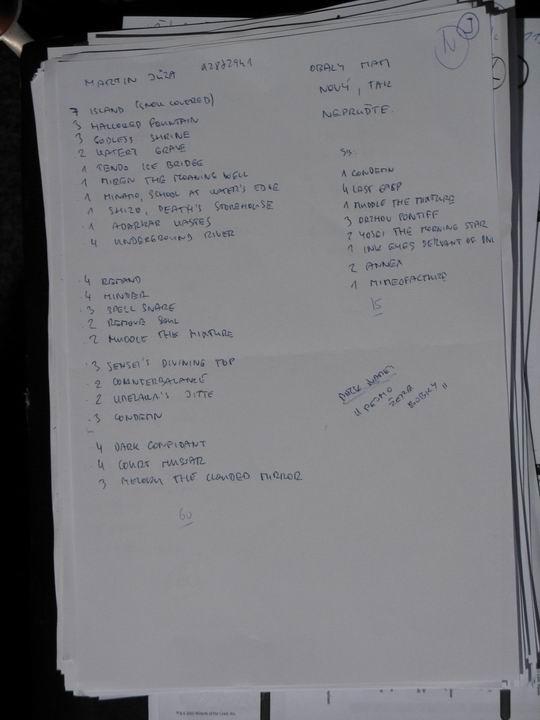 MARTIN JŮZA 12872941
7 ISLAND (SNOW COVERED)
3 HALLOWED FOUNTAIN
3 GODLESS SHRINE
2 WATERY GRAVE
1 TENDO ICE BRIDGE
1 MIREN THE MOANING WELL
1 MINAMO, SCHOOL AT WATER'S EDGE
1 SHIZO, DEATH'S STOREHOUSE
1 ADARKAR WASTES
4 UNDERGROUND RIVER
4 REMAND
4 MINDER
3 SPELL SNARE
2 REMOVE SOUL
2 MUDDLE THE MIXTURE
3 SENSEI'S DIVINING TOP
2 COUNTERBALANCE
2 UMEZAWA'S JITTE
3 CONDEMN
4 DARK CONFIDANT
4 COURT HUSSAR
3 MELOKU THE CLOUDED MIRROR
60
OBALY MAM
NOVÝ, TAK
NEPRUĎTE.
SB:
1 CONDEMN
4 LAST GASP
1 MUDDLE THE MIXTURE
3 ORZHOV PONTIFF
2 YOSEI THE MORNING STAR
1 INK EYES SERVANT OF ONI
2 ANNEX
1 MIMEOFACTURE
15
DECK NAME: